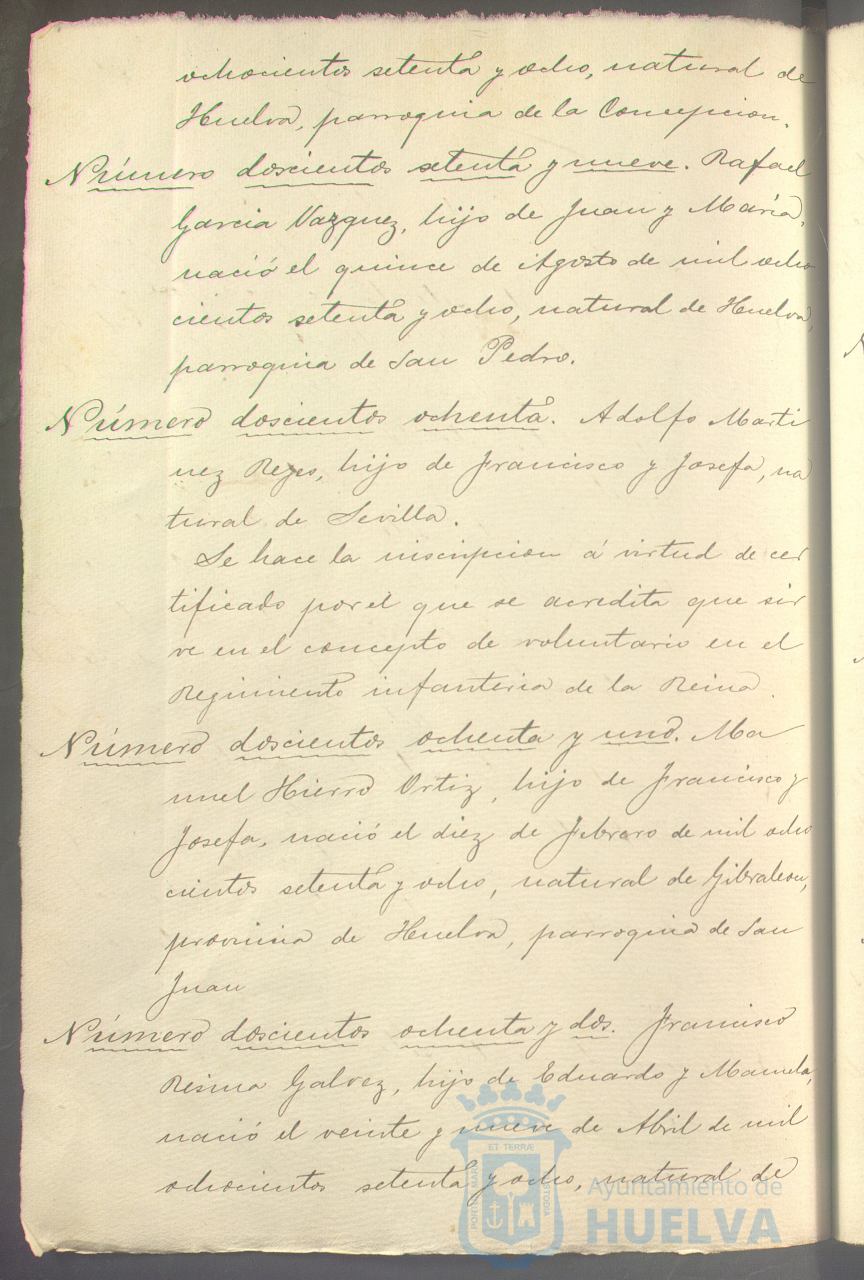 ochocientos setenta y ocho, natural de
Huelva, parroquia de la Concepcion.
Número doscientos setenta y nueve. Rafael
Garcia Vazquez, hijo de Juan y María,
nació el quince de Agosto de mil ocho
cientos setenta y ocho, natural de Huelva,
parroquia de San Pedro.
Número doscientos ochenta. Adolfo Marti
nez Reyes, hijo de Francisco y Josefa, na
tural de Sevilla.
Se hace la inscripcion á virtud de cer
tificado por el que se acredita que sir
ve en el concepto de voluntario en el
Regimiento infanteria de la Reina.
Número doscientos ochenta y uno. Ma
nuel Hierro Ortiz, hijo de Francisco y
Josefa, nació el diez de Febrero de mil ocho
cientos setenta y ocho, natural de Gibraleon,
provincia de Huelva, parroquia de San
Juan
Número doscientos ochenta y dos. Francisco
Galvez, hijo de Eduardo y Manuela,
nació el veinte y nueve de Abril de mil
ochocientos setenta y ocho, natural de
PORTUS MARIS ET TERRÆ CUSTODIA
Ayuntamiento de
HUELVA